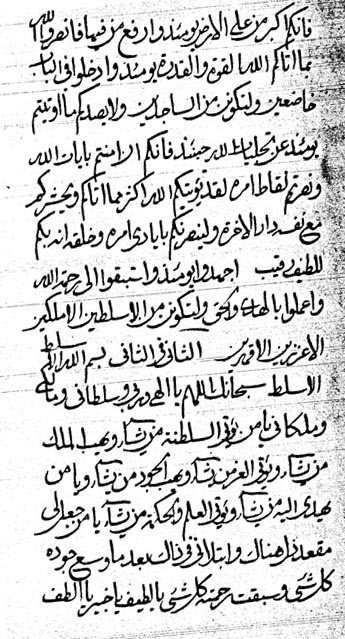 فانكم اكبر من على الارض يومئذ وارفع من فيها فانفروا
بما اتاكم الله القوة والقدرة يومئذ وادخلوا في الباب
خاضعين ولتكونن من الساجدين ولا يصدنكم ما اوتيتم
يومئذ عن تجليات الله حينئذ فانكم ان امنتم بايات الله
ونصرتم لقاط امره لقد يؤتيكم الله اكثر مما اتاكم ويحشركم
مع دار الاخرة ولينصرنكم بايادي امره وخلقه انه بكم
للطيف رقيب اجهدوا يومئذ واستبقوا الى رحمة الله
واعملوا بالهدى والحق ولتكونن من الاسلطين الاملكين
الاعززين الاقهرين الثاني في الثاني بسم الله السلط
الاسلط سبحانك اللهم يا الهي وربي وسلطاني ومالكي
وملكاني يا من يؤتي السلطنة من يشاء ويهب الملك
من يشاء ويؤتي العز من يشاء ويهب الجود من يشاء ويا من
يهدي اليه من يشاء ويؤتي العلم والحكمة من يشاء يا من جعل لي
مقعد هناك وابتلاني في ذلك بعد ما وسع جوده
كل شيء وسبقت رحمته كل شيء يا لطيف يا خبير يا الطف